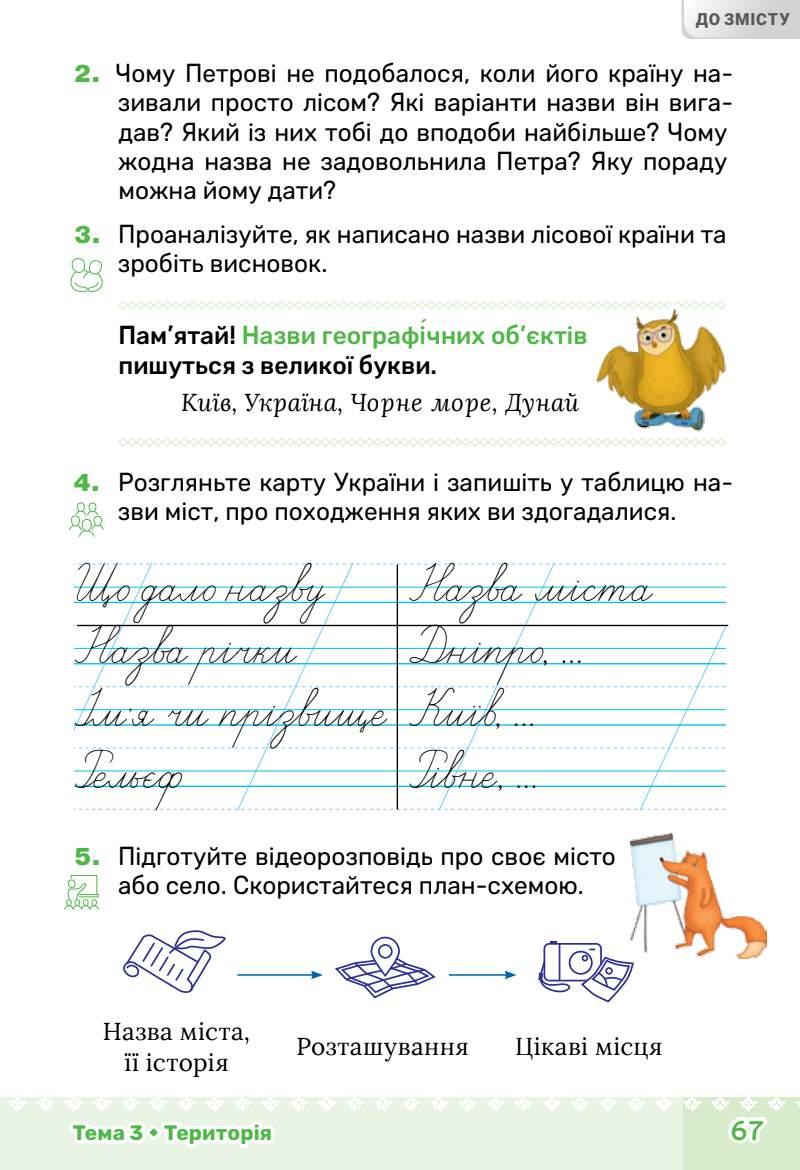 ДО ЗМІСТУ
2. Чому Петрові не подобалося, коли його країну на-
зивали просто лісом? Які варіанти назви він вига-
дав? Який із них тобі до вподоби найбільше? Чому
жодна назва не задовольнила Петра? Яку пораду
можна йому дати?
3. Проаналізуйте, як написано назви лісової країни та
зробіть висновок.
Пам’ятай! Назви географі́чних об’єктів
пишуться з великої букви.
Київ, Україна, Чорне море, Дунай
4. Розгляньте карту України і запишіть у таблицю на-
зви міст, про походження яких ви здогадалися.
Що дало назву Назва міста
Назва річки Дніпро, ...
Ім’я чи прізвище Київ, ...
Рельєф Рівне, ...
5. Підготуйте відеорозповідь про своє місто
або село. Скористайтеся план-схемою.
Назва міста,
її історія
Розташування
Цікаві місця
Тема 3 • Територія
67